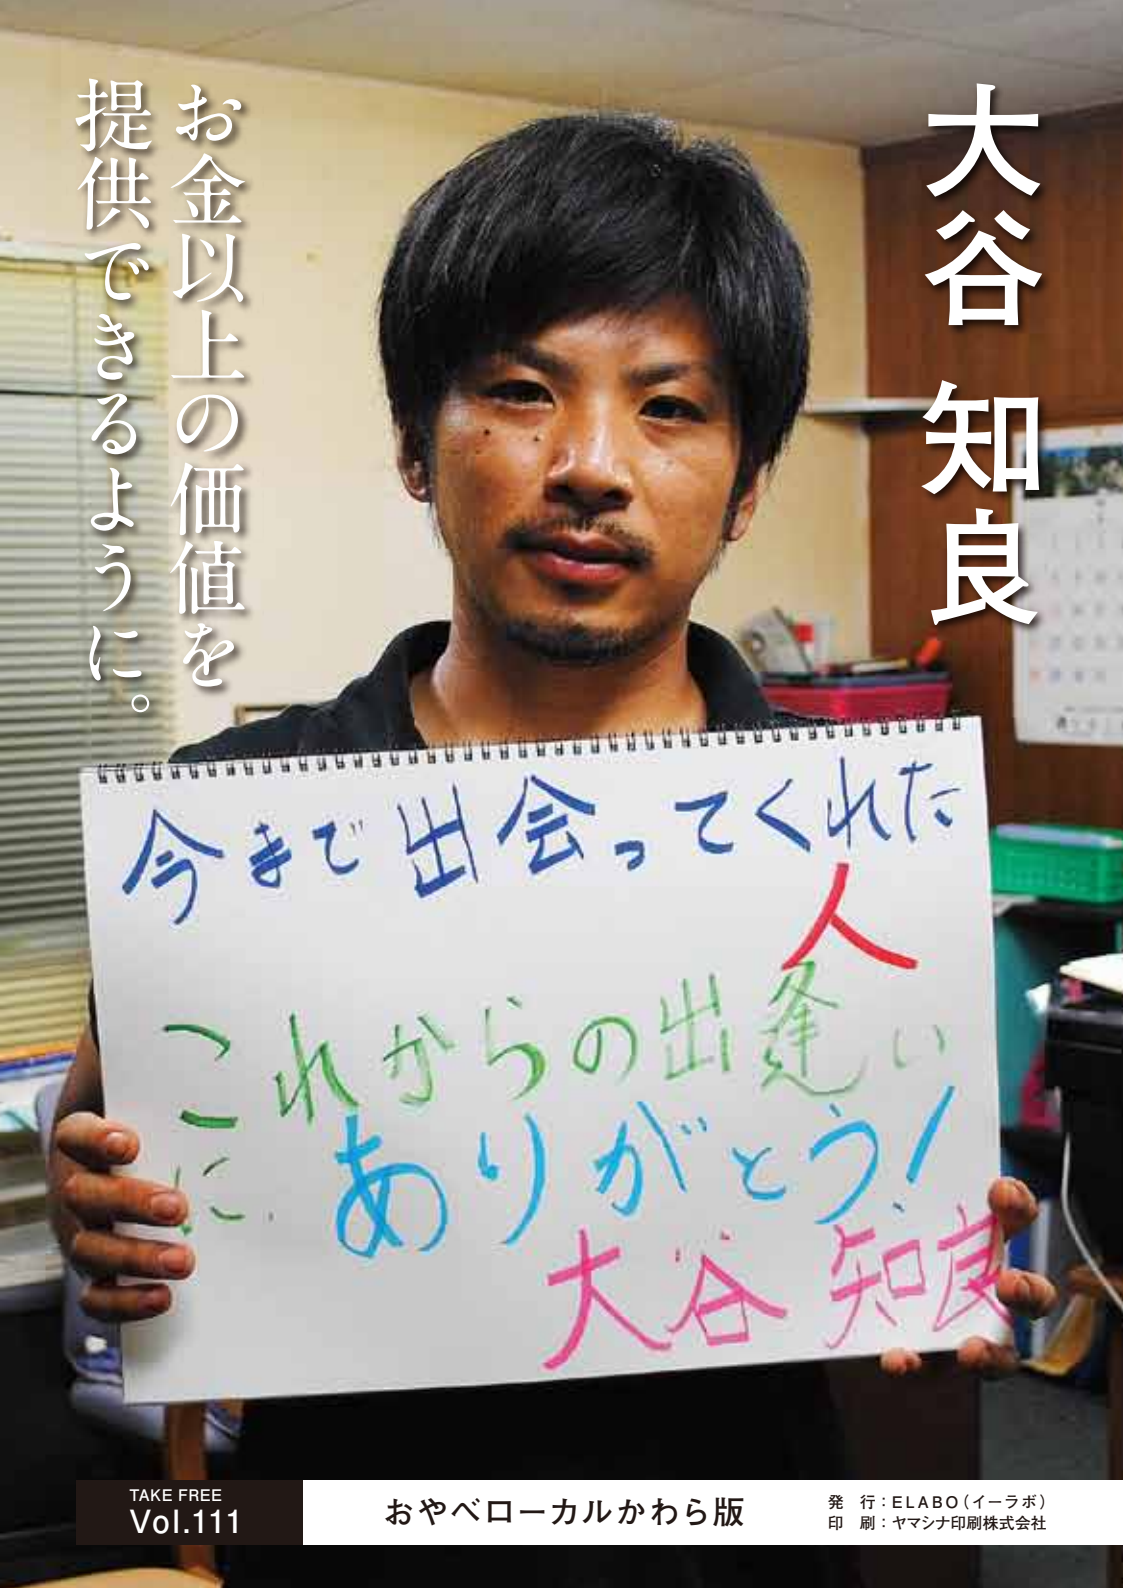 大谷 知良
お金以上の価値を
提供できるように。
今まで出会ってくれた
人
これからの出逢い
に ありがとう!
大谷 知良
TAKE FREE
Vol.111
おやべローカルかわら版
発 行:ELABO(イーラボ)
印 刷:ヤマシナ印刷株式会社